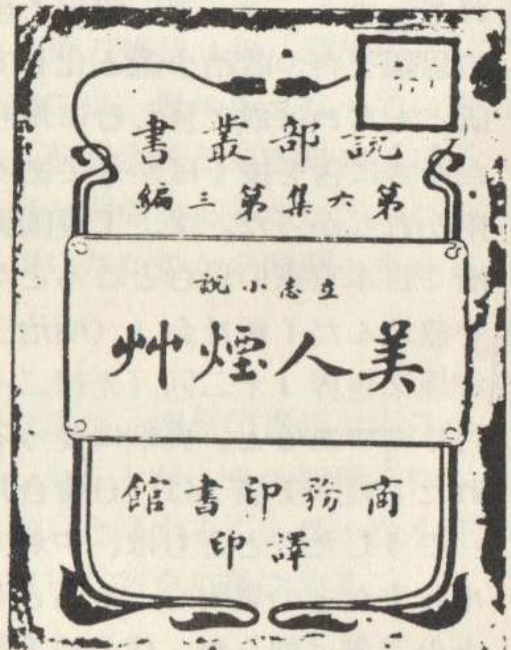 說部叢書
第六集第三編
立志小說
美人煙艸
商務印書館
譯印